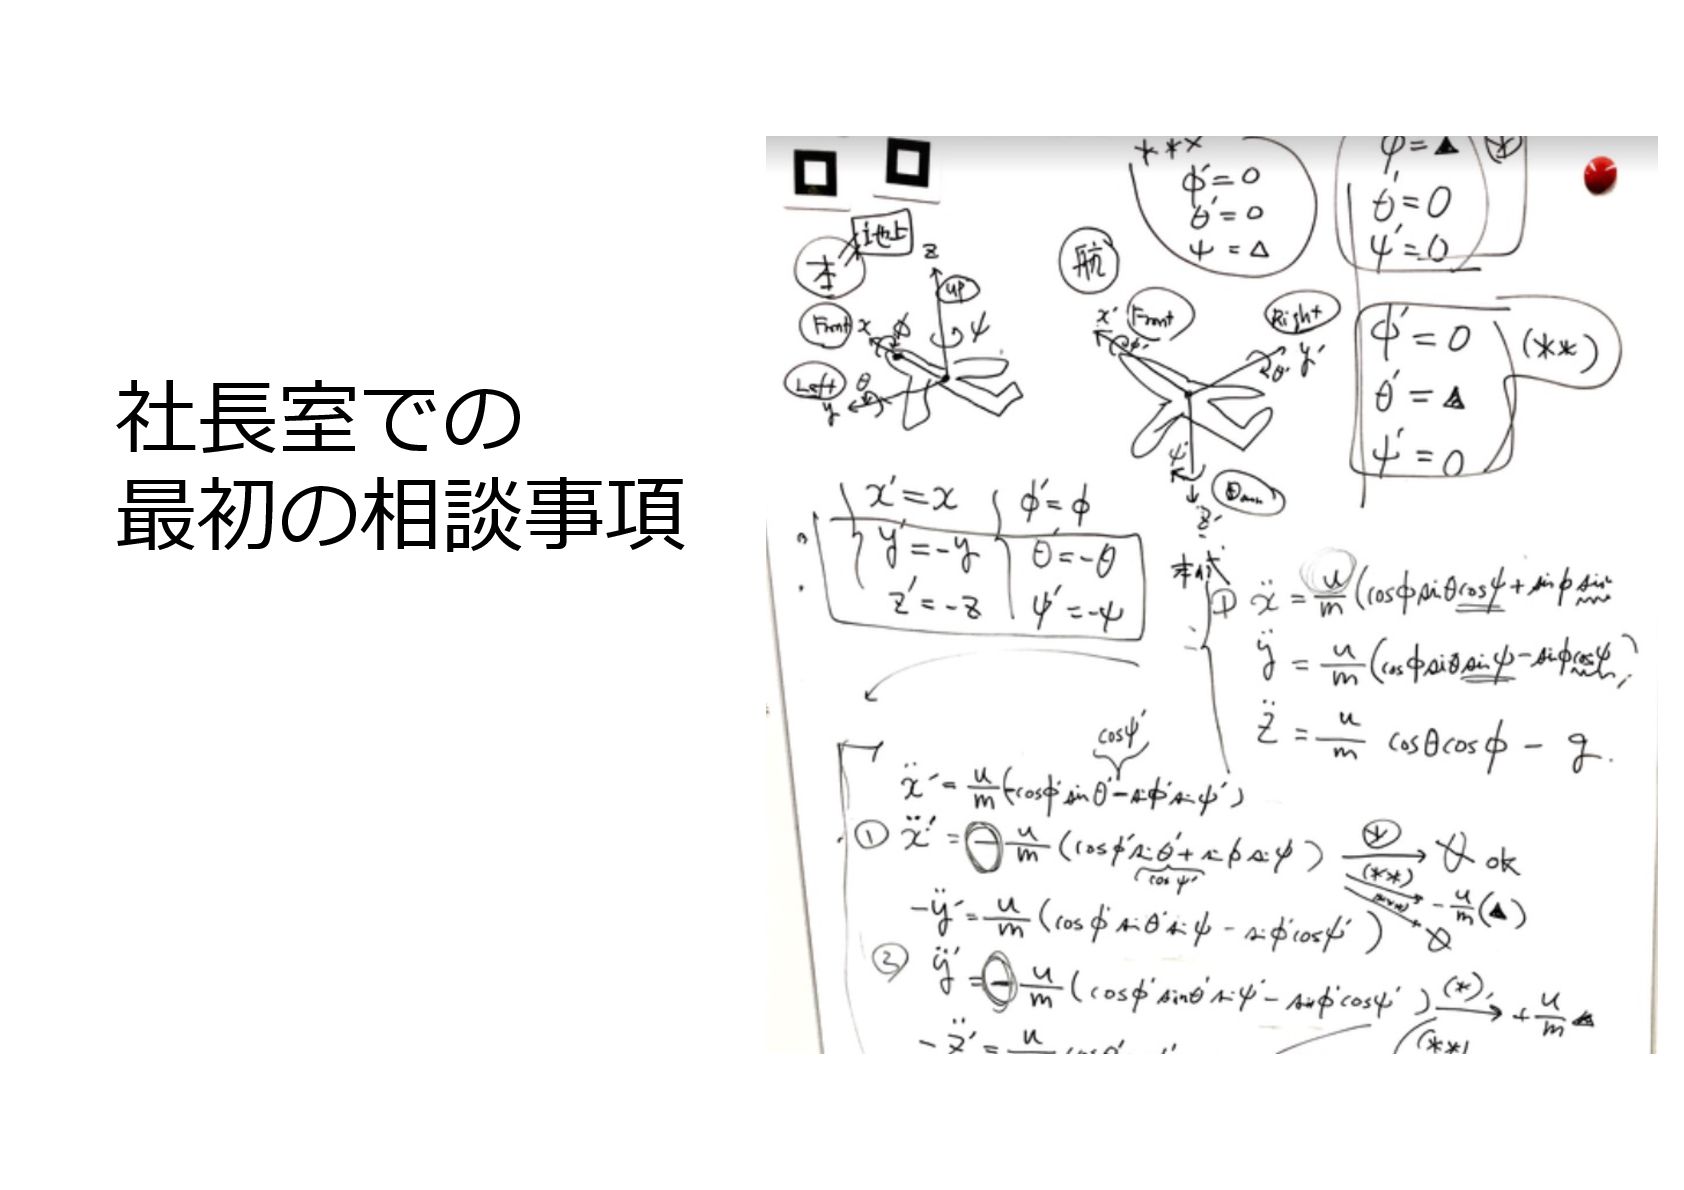 社長室での
最初の相談事項
***
φ'=0
θ'=0
ψ=△
φ=▲
θ'=0
ψ'=0
本
地上
z
up
Front x φ ψ
Left θ
y
航
x' Front
φ'
Right
y'
θ'
ψ'
Down
z'
φ'=0
θ'=▲
ψ'=0
(**)
x'=x φ'=φ
y'=-y θ'=-θ
z'=-z ψ'=-ψ
① ẍ = u/m (cosφsinθcosψ+sinφsin
ÿ = u/m (cosφsinθsinψ-sinφcosψ)
z̈ = u/m cosθcosφ - g.
cosψ'
ẍ' = u/m (-cosφ'sinθ'-sinφ'sinψ')
① ẍ' = - u/m (cosφ'sinθ'+sinφsinψ)
cosψ'
ok
(**)
- u/m (▲)
-ÿ' = u/m (cosφ'sinθ'sinψ-sinφ'cosψ')
② ÿ' = - u/m (cosφ'sinθ'sinψ'-sinφ'cosψ')
(*)
+ u/m ▲
-z̈' = u
(**)